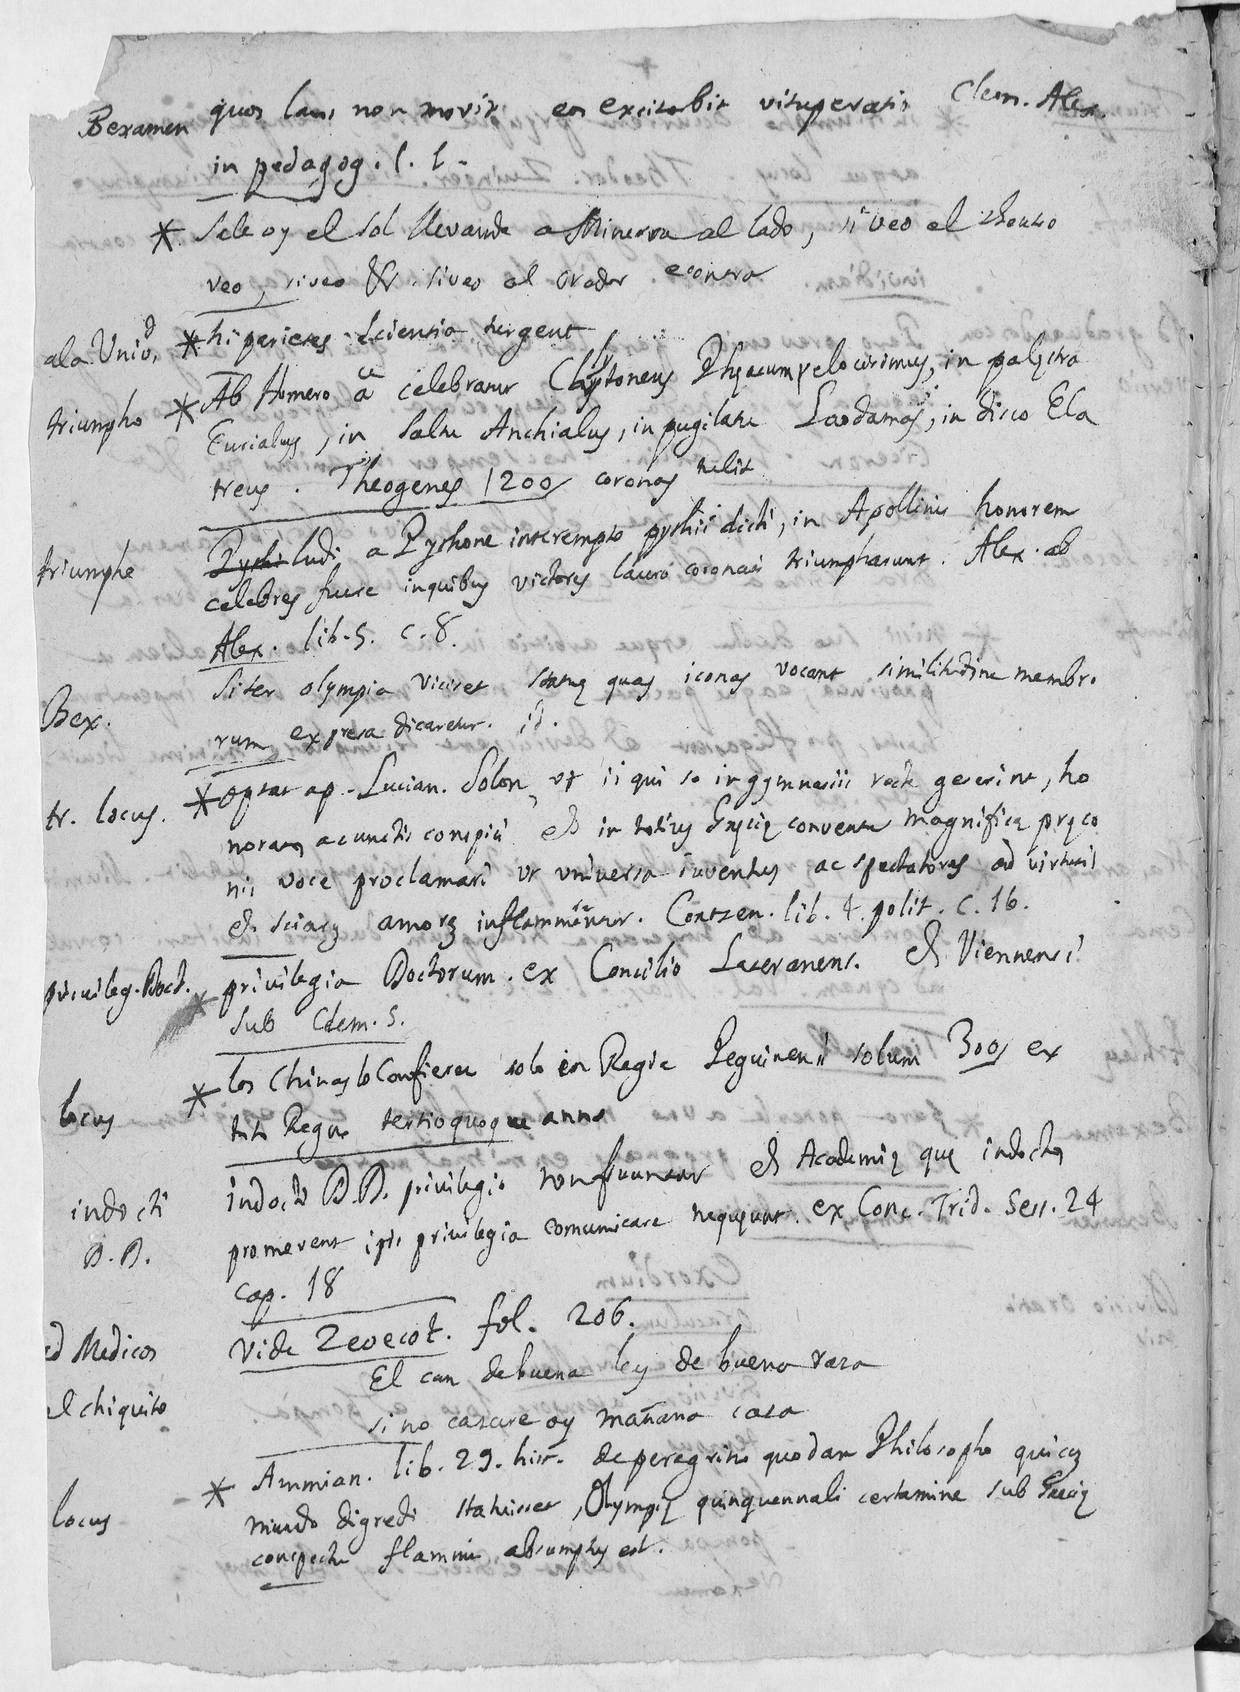 Bexamen quos laus non movit eos excitabit vituperatio Clem. Alex.
in pedagog. l. 1.
* Sale oy el sol llevando a Minerva al lado, si veo el theatro
veo, si veo &. si veo al orador econtra
ala Univd. * hi parietes scientia turgent
triumpho * Ab Homero celebratur Clÿtoneus Phęacum velocissimus, in palęstra
Eurialus, in saltu Anchialus, in pugilatu Laodamas, in disco Ela
treus. Theogenes 1200 coronas tulit
triumphe Pythi ludi a Pythone interempto pythii dicti, in Apollinis honorem
celebres fuere in quibus victores lauro coronati triumpharunt. Alex. ab
Alex. lib. 5. c. 8.
Bex. Si ter olympia vicisset statuę quas iconas vocant similitudine membro
rum expresa dicaretur. id.
tr. locus. * optat ap. Lucian. Solon, ut ii qui se in gymnasiis recte gesserint, ho
noratos a cunctis conspici et in totius Gręcię conventu magnifica pręco
nii voce proclamari ut universa iuventus ac spectatores ad virtutis
et amore inflammentur. Contzen. lib. 4. polit. c. 16.
privileg. Doct. * privilegia Doctorum. ex Concilio Lateranens. et Viennensi
sub Clem. 5.
locus * los Chinas lo Confieren solo en Regia Pequinensi solum 300 ex
toto Regno tertio quoque anno
indocti D.D. indocti D.D. privilegio non fruuntur et Academię quę indoctos
promovent ipsis privilegia comunicare nequeunt. ex Conc. Trid. Sess. 24
cap. 18
Vide Zevecot. fol. 206.
ad Medicos El can de buena ley de buena raza
el chiquito si no cazare oy mañana caza
locus * Ammian. lib. 29. hist. de peregrino quodam Philosopho qui cum
mundo digredi statuisset, Olympię quinquennali certamine sub Gręcię
conspectu flammis absumptus est.